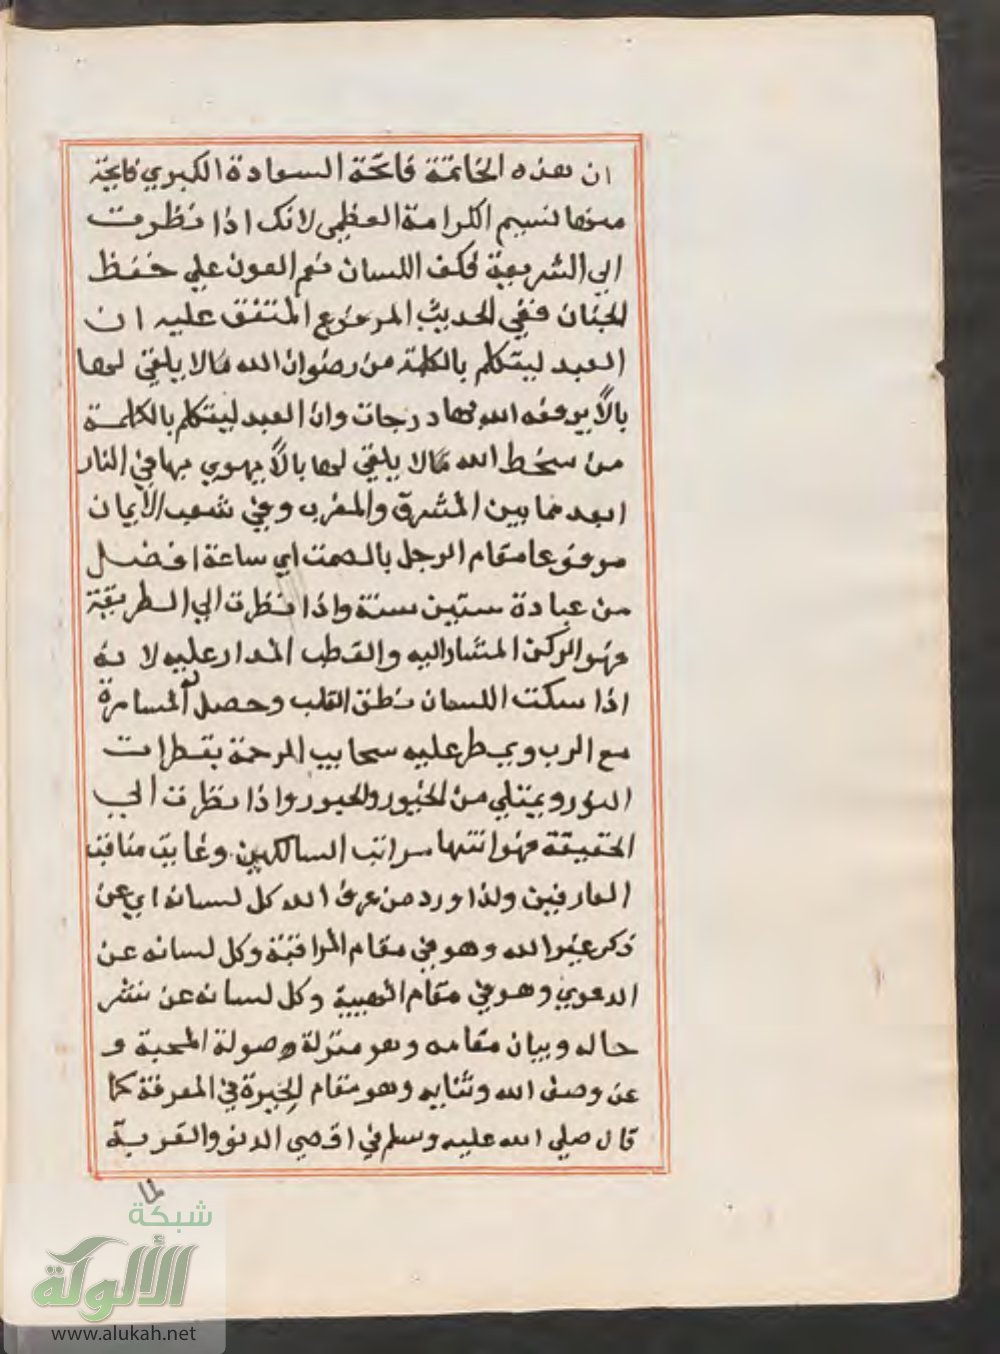 ان هذه الخاتمة فاتحة السعادة الكبري فايحة
منها نسيم الكرامة العظمي لانك اذا نظرت
الي الشريعة فكف اللسان نعم العون علي حفظ
الجنان ففي الحديث المرفوع المتفق عليه ان
العبد ليتكلم بالكلمة من رضوان الله مالا يلقي لها
بالاً يرفعه الله بها درجات وان العبد ليتكلم بالكلمة
من سخط الله مالا يلقي لها بالاً يهوي بها في النار
ابعد مما بين المشرق والمغرب وفي شعب الايمان
مرفوعا مقام الرجل بالصمت اي ساعة افضل
من عبادة ستين سنة واذا نظرت الي الطريقة
فهو الركن المشار اليه والقطب المدار عليه لانه
اذا سكت اللسان نطق القلب وحصل له المسامرة
مع الرب ويمطر عليه سحايب الرحمة بقطرات
النور ويمتلي من الحبور والحبور واذا نظرت الي
الحقيقة فهو انتها مراتب السالكين وغايت مناقب
العارفين ولذا ورد من عرف الله كل لسانه اي عن
ذكر غير الله وهو في مقام المراقبة وكل لسانه عن
الدعوي وهو في مقام الهيبة وكل لسانه عن نشر
حاله وبيان مقامه وهو منزلة وصولة المحبة و
عن وصف الله وثنايه وهو مقام الحيرة في المعرفة كما
قال صلي الله عليه وسلم في اقصي الدنو والقربة
لا
شبكة
الألوكة
www.alukah.net